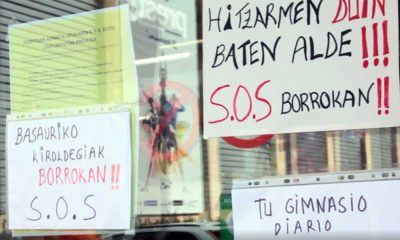 HITZARMEN DUIN
BATEN ALDE!!!
S.O.S BORROKAN!!
BASAURIKO
KIROLDEGIAK
BORROKAN!!
S.O.S
TU GIMNASIO
DIARIO